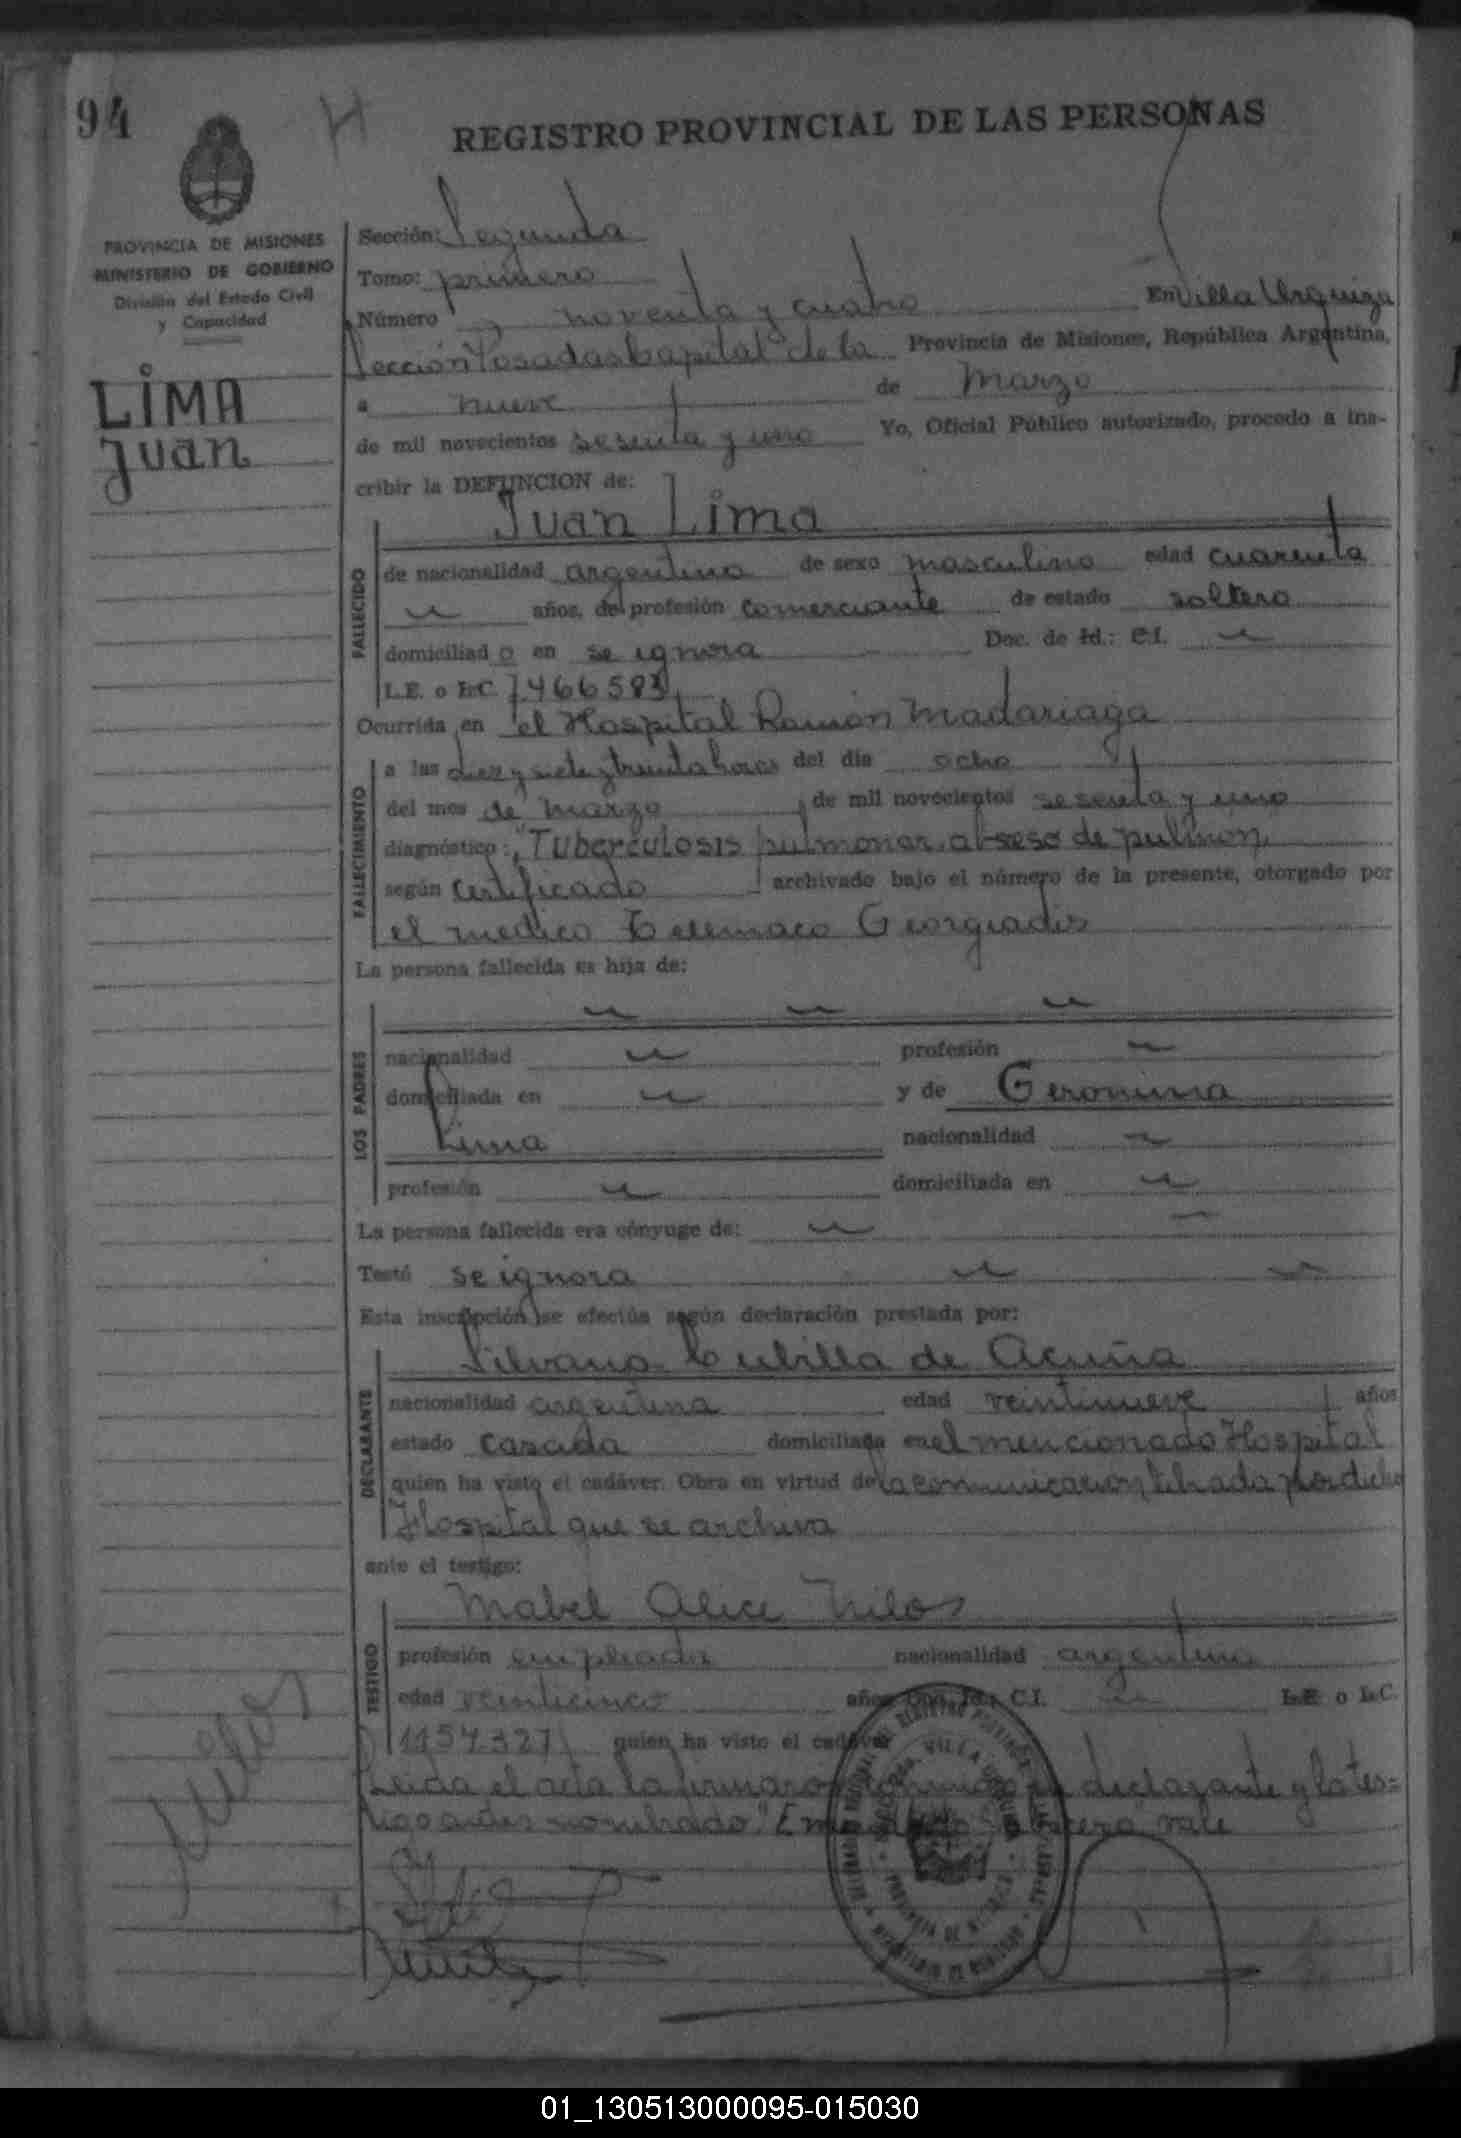 94
H
REGISTRO PROVINCIAL DE LAS PERSONAS
PROVINCIA DE MISIONES
MINISTERIO DE GOBIERNO
División del Estado Civil
y Capacidad
LIMA
Juan
Sección: Segunda
Tomo: primero
Número noventa y cuatro En Villa Urquiza
Sección Posadas Capital de la Provincia de Misiones, República Argentina,
a nueve de Marzo
de mil novecientos sesenta y uno Yo, Oficial Público autorizado, procedo a ins-
cribir la DEFUNCION de:
Juan Lima
FALLECIDO
de nacionalidad argentino de sexo masculino edad cuarenta
años, de profesión comerciante de estado soltero
domiciliado en se ignora Doc. de Id.: C.I.
L.E. o L.C. 7.466583
Ocurrida en el Hospital Ramón Madariaga
FALLECIMIENTO
a las diez y siete y treinta horas del día ocho
del mes de marzo de mil novecientos sesenta y uno
diagnóstico: "Tuberculosis pulmonar, abseso de pulmón
según certificado archivado bajo el número de la presente, otorgado por
el medico Telemaco Georgiadis
La persona fallecida es hija de:
LOS PADRES
nacionalidad profesión
domiciliada en y de Geronima
Lima nacionalidad
profesión domiciliada en
La persona fallecida era cónyuge de:
Testó se ignora
Esta inscripción se efectúa según declaración prestada por:
DECLARANTE
Silvana Cubilla de Acuña
nacionalidad argentina edad veintinueve años
estado casada domiciliada en el mencionado Hospital
quien ha visto el cadáver. Obra en virtud de la comunicación librada por dicho
Hospital que se archiva
ante el testigo:
TESTIGO
Mabel Alice Milos
profesión empleada nacionalidad argentina
edad veinticinco años Doc. Id.: C.I. L.E. o L.C.
1154.327 quien ha visto el cadáver
Leida el acta la firmaron conmigo la declarante y la tes=
tigo antes nombrado."Enmendado vale
Milos
01_130513000095-015030